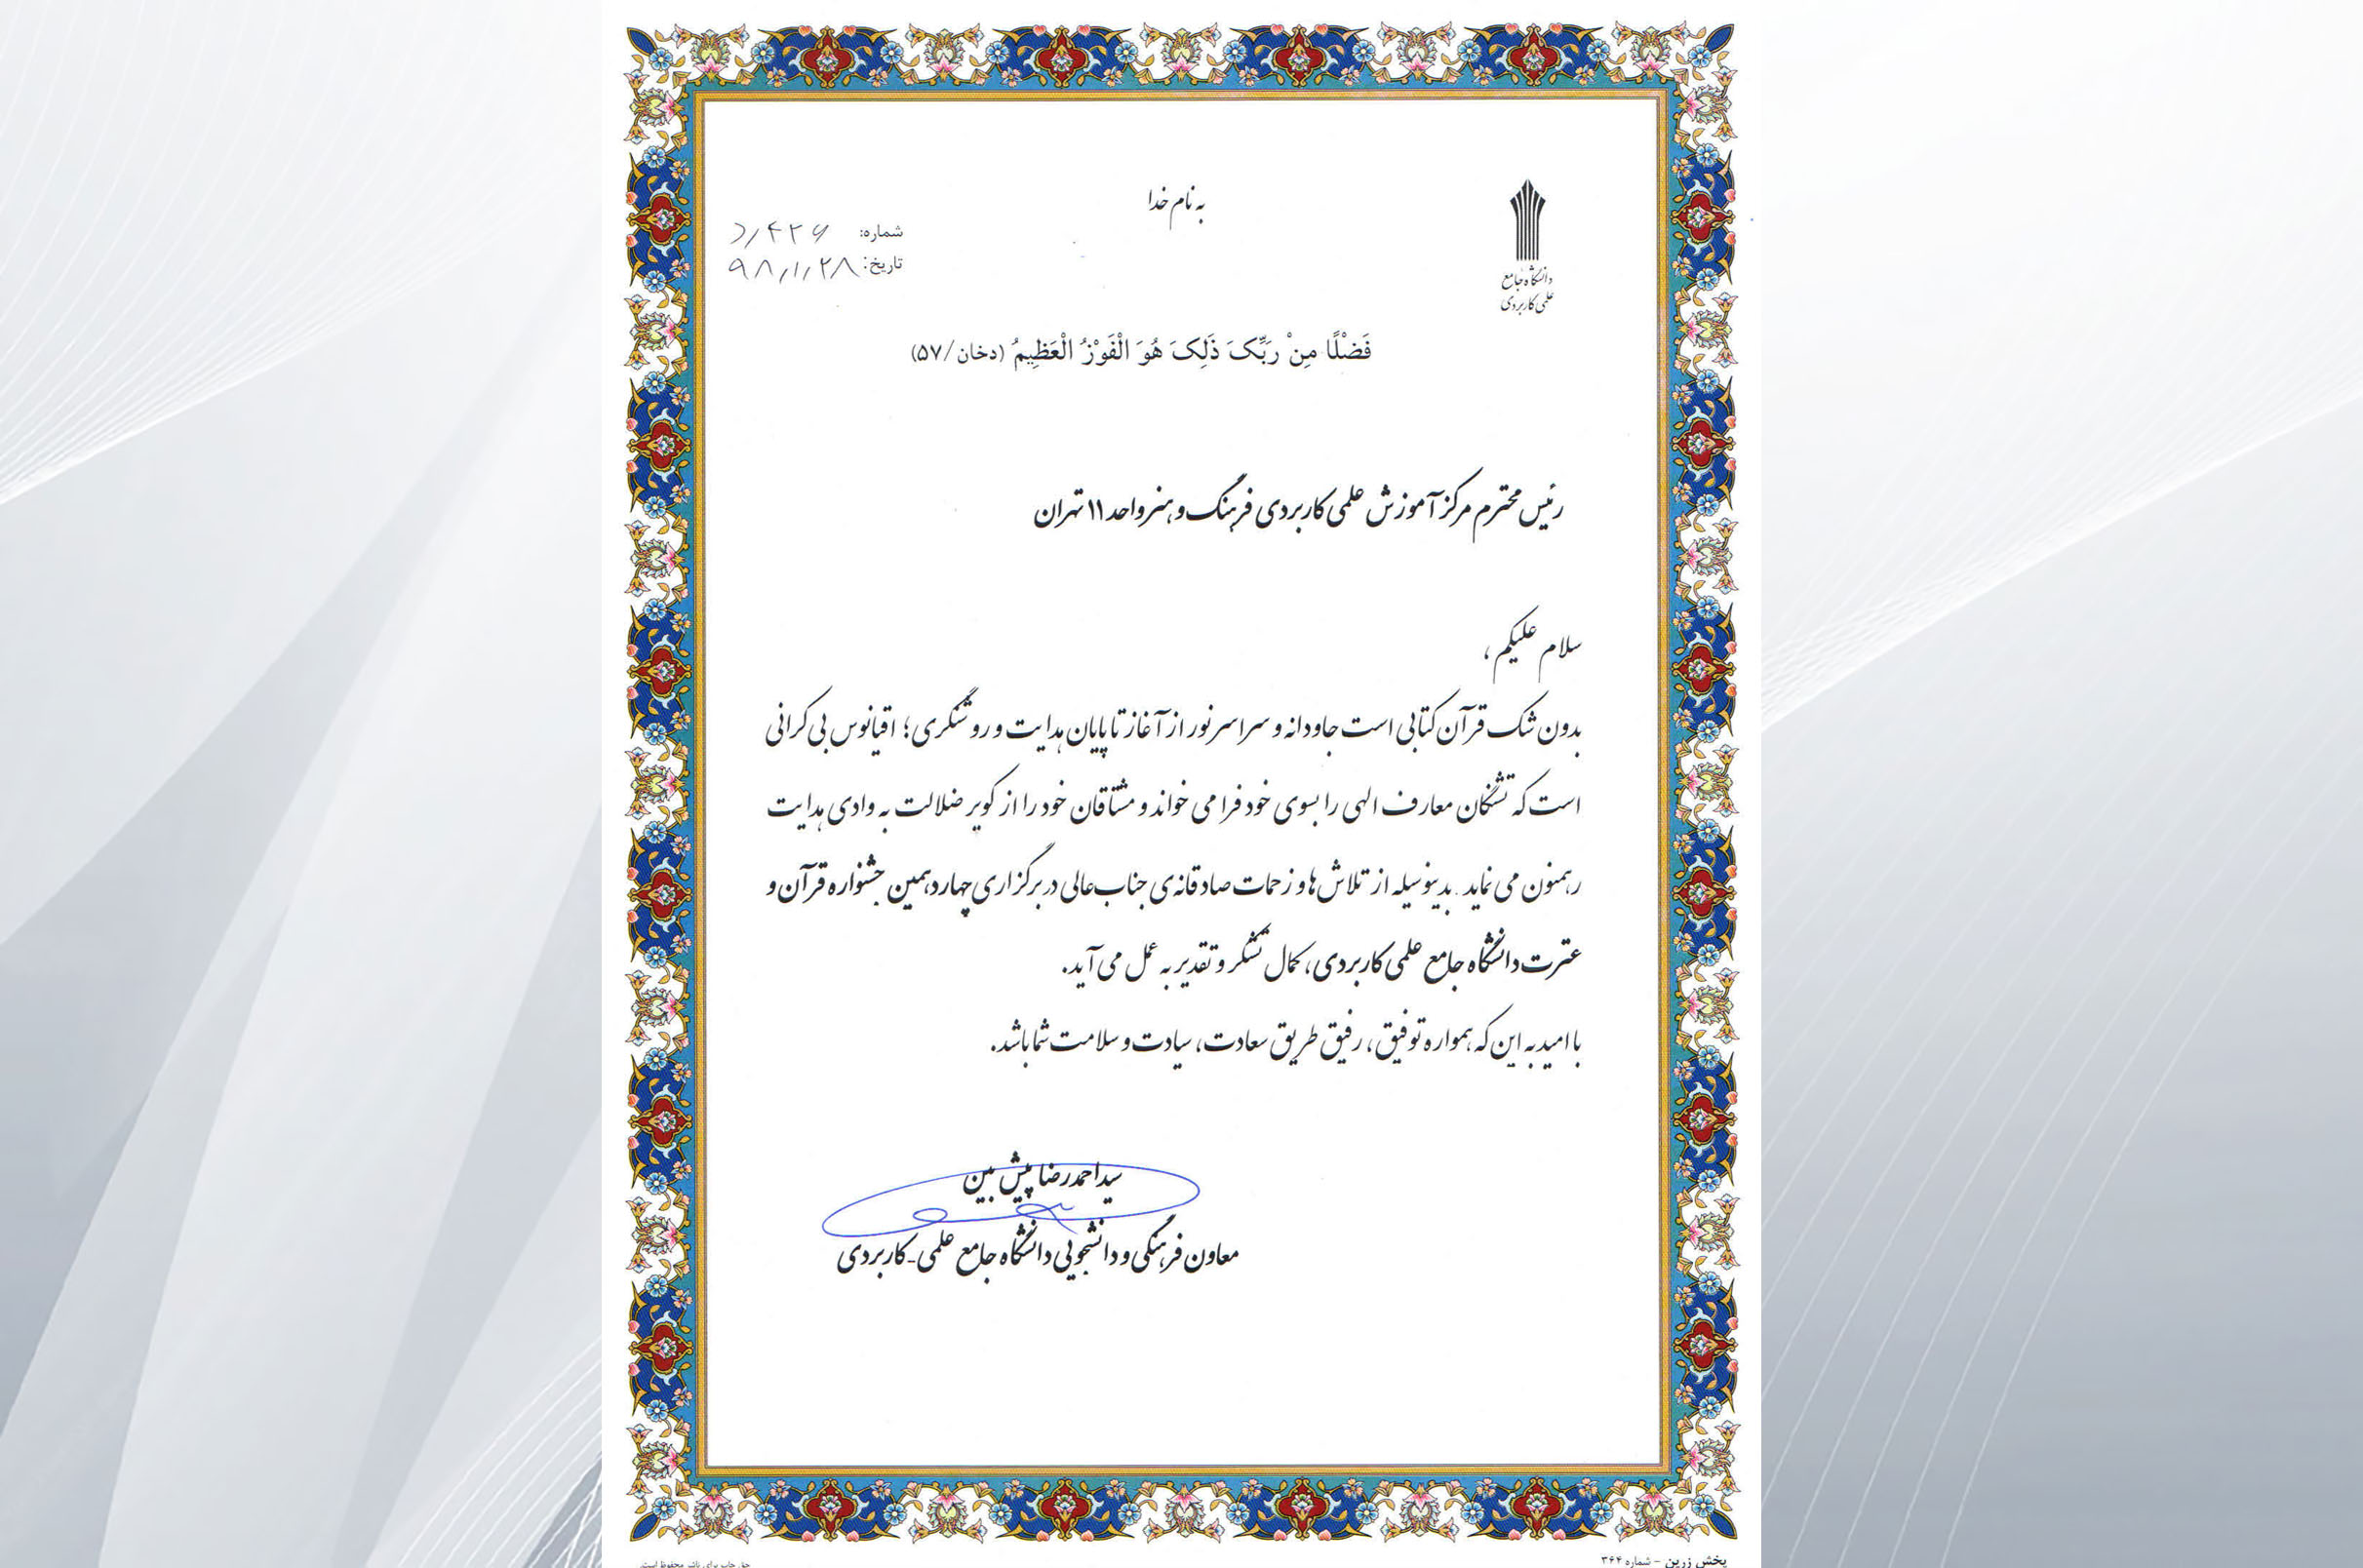 به نام خدا
دانشگاه جامع
علمی کاربردی
شماره: ۴۲۶/د
تاریخ: ۹۸/۱/۲۸
فَضْلًا مِنْ رَبِّکَ ذَلِکَ هُوَ الْفَوْزُ الْعَظِیمُ (دخان/۵۷)
رئیس محترم مرکز آموزش علمی کاربردی فرهنگ و هنر واحد ۱۱ تهران
سلام علیکم ،
بدون شک قرآن کتابی است جاودانه و سراسر نور از آغاز تا پایان هدایت و روشنگری؛ اقیانوس بی کرانی
است که تشنگان معارف الهی را بسوی خود فرا می خواند و مشتاقان خود را از کویر ضلالت به وادی هدایت
رهنمون می نماید. بدینوسیله از تلاش ها و زحمات صادقانه‌ی جناب‌عالی در برگزاری چهاردهمین جشنواره قرآن و
عترت دانشگاه جامع علمی کاربردی، کمال تشکر و تقدیر به عمل می آید.
با امید به این که همواره توفیق، رفیق طریق سعادت، سیادت و سلامت شما باشد.
سید احمد رضا پیش بین
معاون فرهنگی و دانشجویی دانشگاه جامع علمی-کاربردی
پخش زرین - شماره ۳۶۴
حق چاپ برای ناشر محفوظ است.